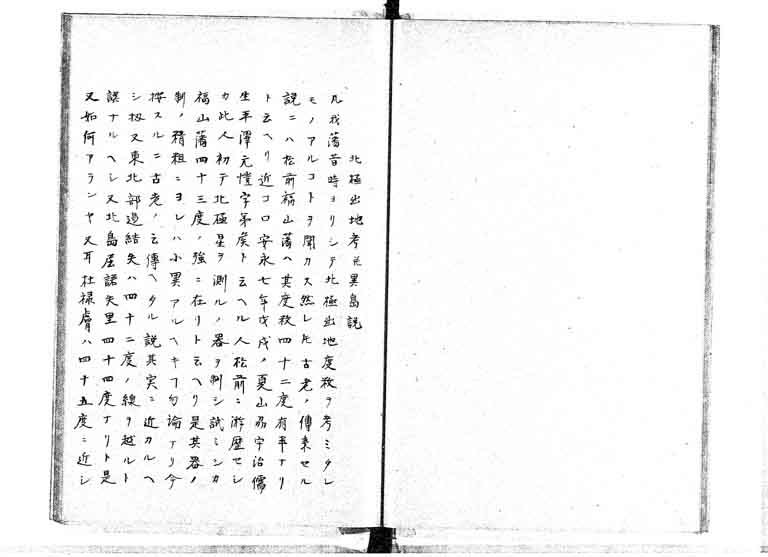 北極出地考並異島説
凡我藩昔時ヨリシテ北極出地度数ヲ考ミタレ
モノアルコトヲ聞カス然レ𪜈古老ノ傳来セル
説ニハ松前福山藩ヘ其度数四十二度有半ナリ
ト云ヘリ近コロ安永七年戊戌ノ夏山城宇治儒
生平澤元愷字弟矦ト云ヘル人松前ニ游歴セシ
カ此人初テ北極星ヲ測ルノ器ヲ制シ試ミシカ
福山藩四十三度ノ強ニ在リト云ヘリ是其器ノ
制ノ精粗ニヨレハ小異アルヘキヿ勿論ナリ今
按スルニ古老ノ云傳ヘタル説其実ニ近カルヘ
シ扨又東北部過結矣ハ四十二度ノ線ヲ越ルト
誤ナルヘシ又北島居諸矢里四十四度ナリト是
又如何アランヤ又耳杜禄膚ハ四十五度ニ近シ